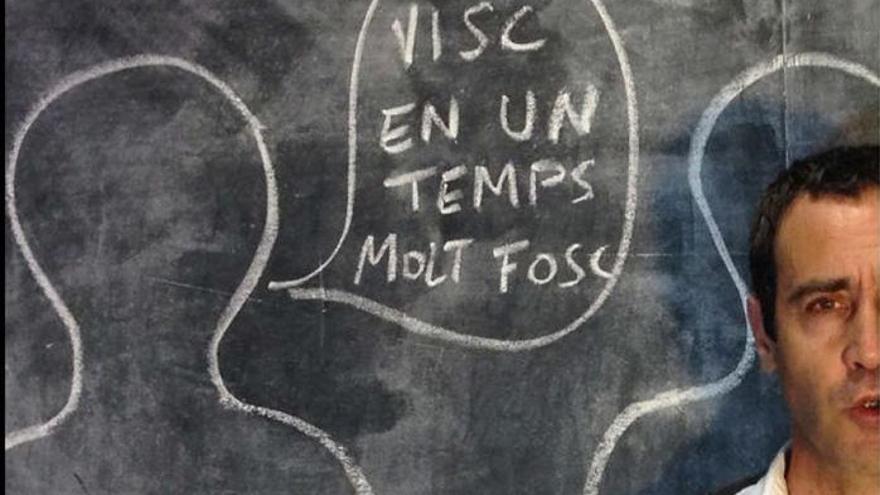 VISC
EN UN
TEMPS
MOLT FOSC